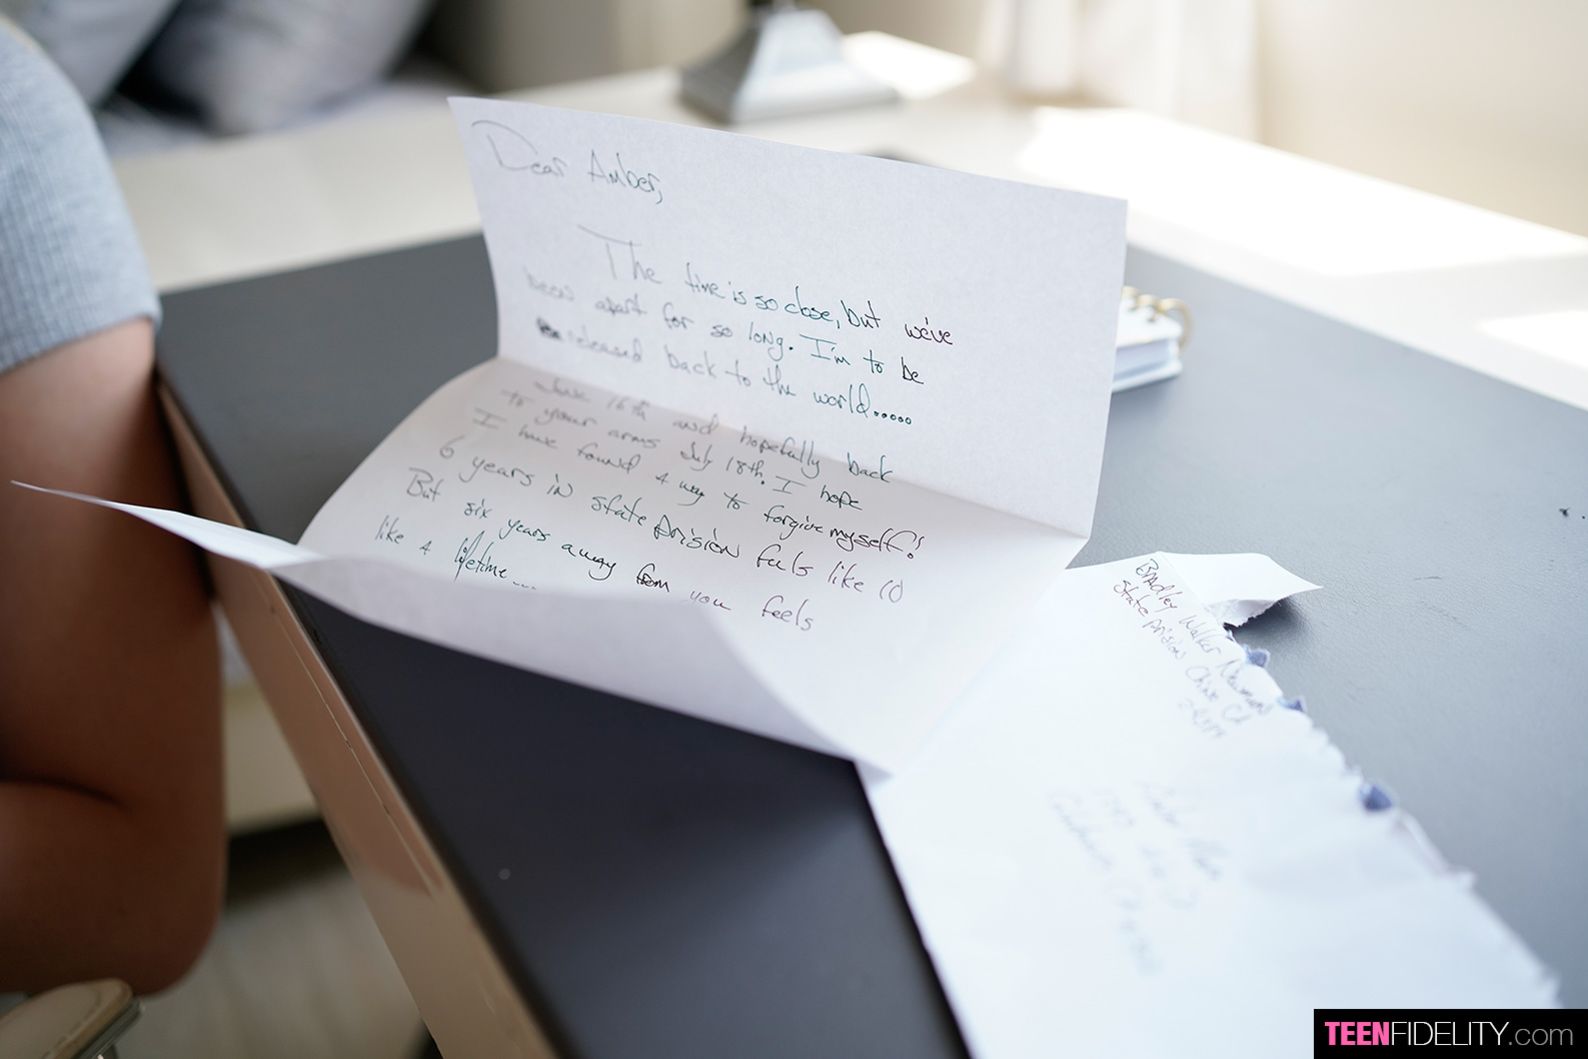 Dear Amber,
The time is so close, but we've
been apart for so long. I'm to be
released back to the world.....
June 16th and hopefully back
to your arms July 18th. I hope
I have found a way to forgive myself!
6 years in state prision feels like 10
But six years away from you feels
like a lifetime...
Bradley Walker Newman
State prision Chino CA
TEENFIDELITY.com